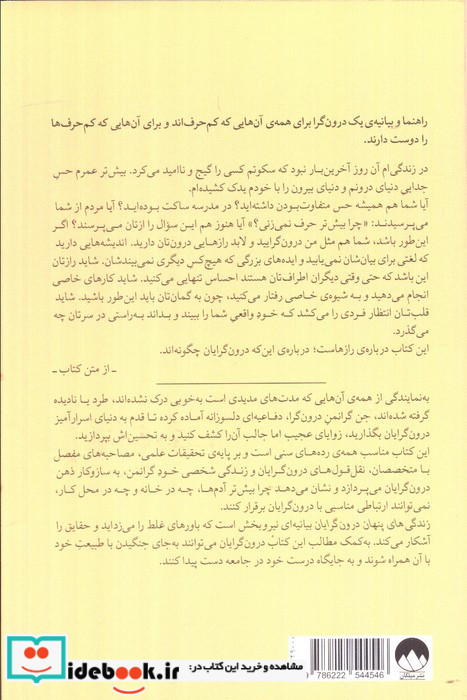 راهنما و بیانیه‌ی یک درون‌گرا برای همه‌ی آن‌هایی که کم‌حرف‌اند و برای آن‌هایی که کم‌حرف‌ها
را دوست دارند.
در زندگی‌ام آن روز آخرین‌بار نبود که سکوتم کسی را گیج و ناامید می‌کرد. بیش‌تر عمرم حس
جدایی دنیای درونم و دنیای بیرون را با خودم یدک کشیده‌ام.
آیا شما هم همیشه حس متفاوت‌بودن داشته‌اید؟ در مدرسه ساکت بوده‌اید؟ آیا مردم از شما
می‌پرسیدند: «چرا بیش‌تر حرف نمی‌زنی؟» آیا هنوز هم این سؤال را ازتان می‌پرسند؟ اگر
این‌طور باشد، شما هم مثل من درون‌گرایید و لابد رازهایی درون‌تان دارید. اندیشه‌هایی دارید
که لغتی برای بیان‌شان نمی‌یابید و ایده‌های بزرگی که هیچ‌کس دیگری نمی‌بیندشان. شاید رازتان
این باشد که حتی وقتی دیگران اطراف‌تان هستند احساس تنهایی می‌کنید. شاید کارهای خاصی
انجام می‌دهید و به شیوه‌ی خاصی رفتار می‌کنید، چون به گمان‌تان باید این‌طور باشید. شاید
قلب‌تان انتظار فردی را می‌کشد که خودِ واقعی شما را ببیند و بداند به‌راستی در سرتان چه
می‌گذرد.
این کتاب درباره‌ی رازهاست؛ درباره‌ی این‌که درون‌گرایان چگونه‌اند.
ـ از متن کتاب ـ
به‌نمایندگی از همه‌ی آن‌هایی که مدت‌های مدیدی است به‌خوبی درک نشده‌اند، طرد یا نادیده
گرفته شده‌اند، جن گرانمنِ درون‌گرا، دفاعیه‌ای دلسوزانه آماده کرده تا قدم به دنیای اسرارآمیز
درون‌گرایان بگذارید، زوایای عجیب اما جالب آن‌را کشف کنید و به تحسین‌اش بپردازید.
این کتاب مناسب همه‌ی رده‌های سنی است و بر پایه‌ی تحقیقات علمی، مصاحبه‌های مفصل
با متخصصان، نقل‌قول‌های درون‌گرایان و زندگی شخصی خودِ گرانمن، به سازوکار ذهن
درون‌گرایان می‌پردازد و نشان می‌دهد چرا بیش‌تر آدم‌ها، چه در خانه و چه در محل کار،
نمی‌توانند ارتباطی مناسبی با درون‌گرایان برقرار کنند.
زندگی‌های پنهان درون‌گرایان بیانیه‌ای نیروبخش است که باورهای غلط را می‌زداید و حقایق را
آشکار می‌کند. به‌کمک مطالب این کتاب درون‌گرایان می‌توانند به‌جای جنگیدن با طبیعت خود
با آن همراه شوند و به جایگاه درست خود در جامعه دست پیدا کنند.
786222 544546
نشر میلکان
مشاهده و خرید این کتاب در:
idebook.ir